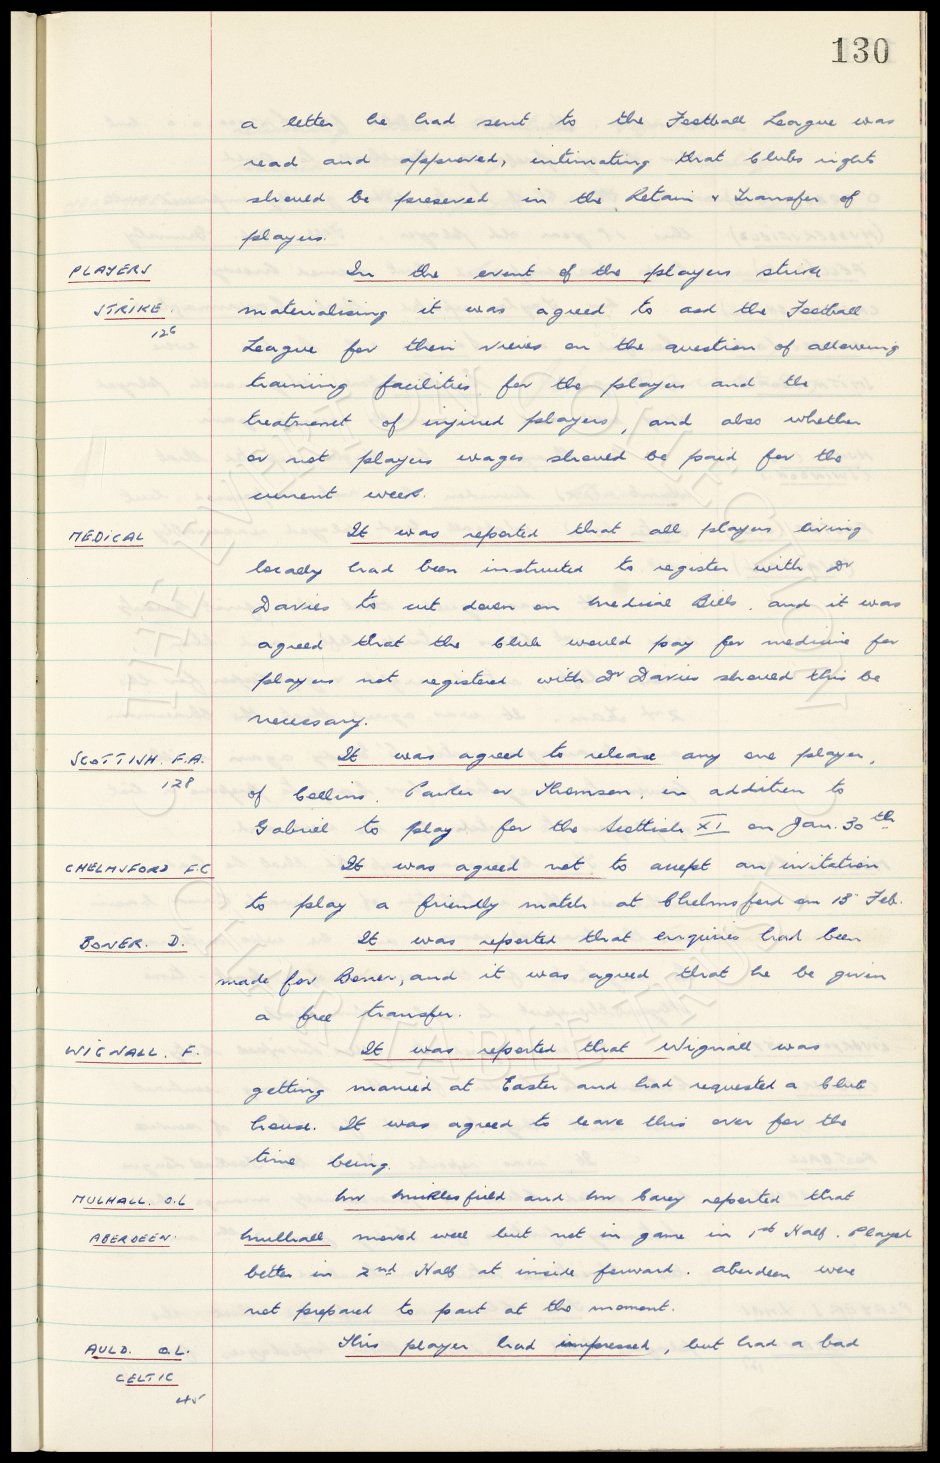 130
a letter he had sent to the Football League was
read and approved, intimating that Clubs rights
should be preserved in the Retain & Transfer of
players.
PLAYERS In the event of the players strike
STRIKE. materialising it was agreed to ask the Football
126
League for their views on the question of allowing
training facilities for the players and the
treatment of injured players, and also whether
or not players wages should be paid for the
current week.
MEDICAL It was reported that all players living
locally had been instructed to register with Dr
Davies to cut down on Medical Bills. and it was
agreed that the Club would pay for medicine for
players not registered with Dr Davies should this be
necessary.
SCOTTISH. F.A. It was agreed to release any one player,
128
of Collins. Parker or Thomson, in addition to
Gabriel to play for the Scottish XI on Jan. 30th
CHELMSFORD F.C It was agreed not to accept an invitation
to play a friendly match at Chelmsford on 13 Feb.
BONER. D. It was reported that enquiries had been
made for Boner, and it was agreed that he be given
a free transfer.
WIGNALL. F. It was reported that Wignall was
getting married at Easter and had requested a Club
house. It was agreed to leave this over for the
time being.
MULHALL. O.L Mr Micklesfield and Mr Carey reported that
ABERDEEN. Mulhall moved well but not in game in 1st Half. Played
better in 2nd Half at inside forward. Aberdeen were
not prepared to part at the moment.
AULD. O.L. This player had impressed, but had a bad
CELTIC
45